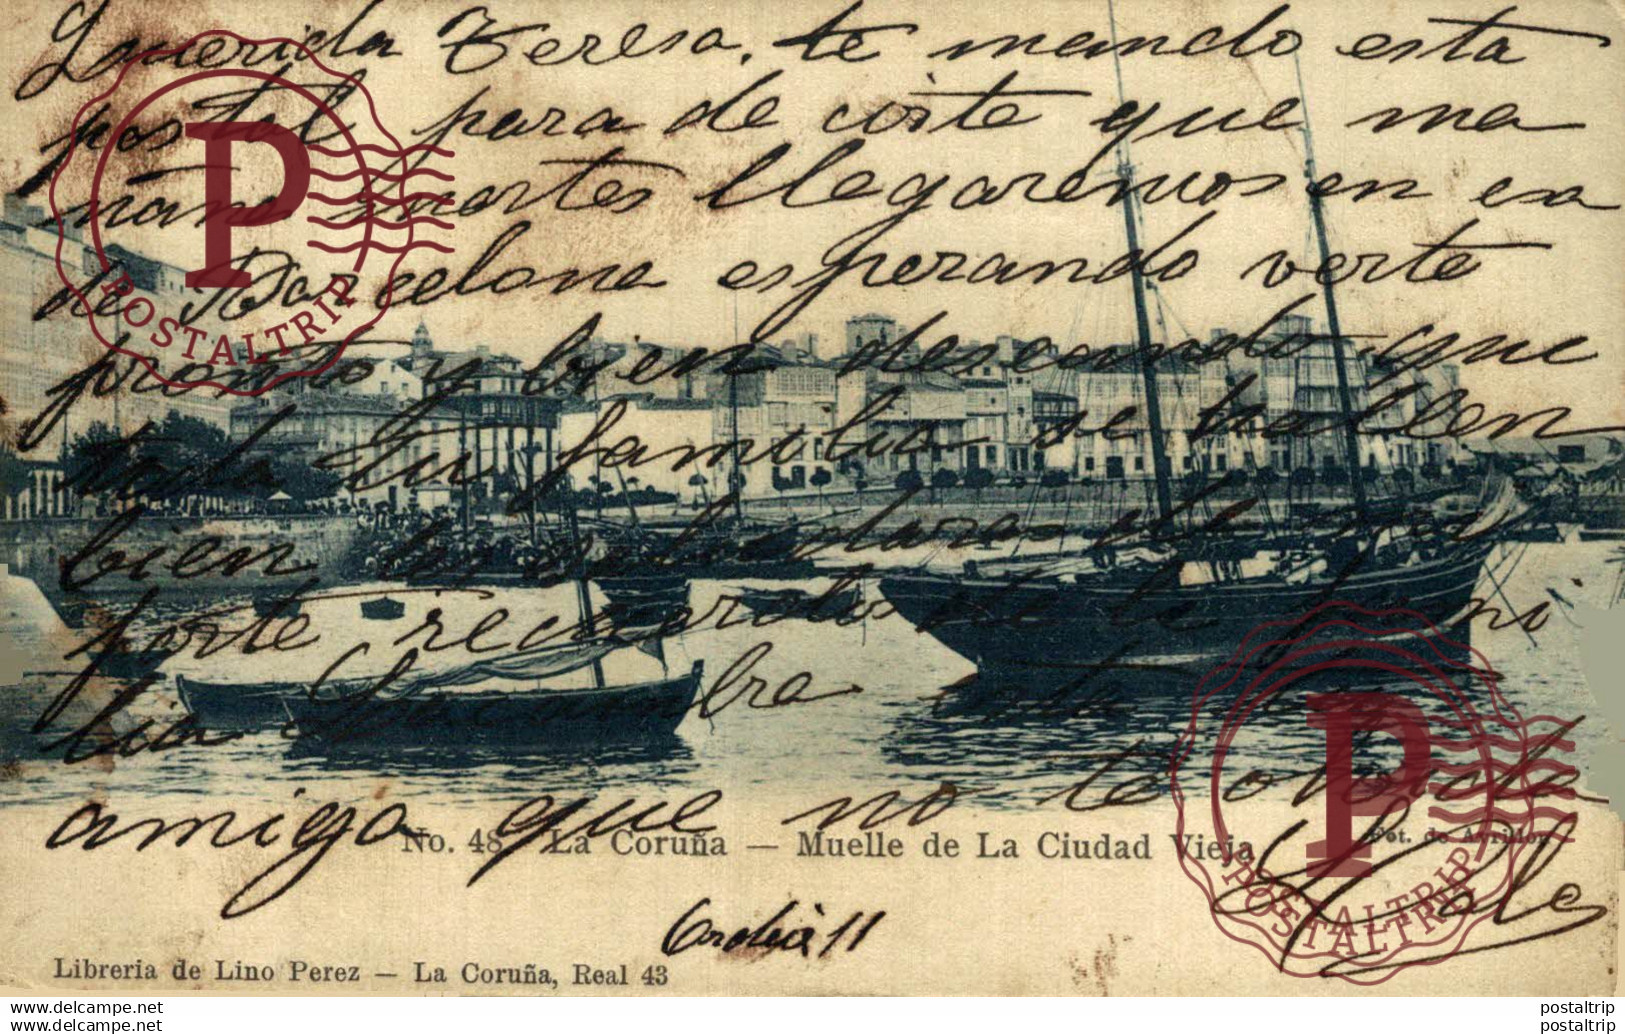 Querida Teresa, te mando esta
postal para decirte que ma
ñana martes llegaremos en esa
de Barcelona esperando verte
pronto y bien deseando que
toda tu familia se hallen
bien
forte recuerdos de la fami
lia
amiga que no te olvida
No. 48 La Coruña — Muelle de La Ciudad Vieja
Fot. de Avrillon
11
Libreria de Lino Perez — La Coruña, Real 43
P
POSTALTRIP
P
POSTALTRIP
POSTALTRIP
https://www.delcampe.net
postaltrip
https://www.delcampe.net
postaltrip